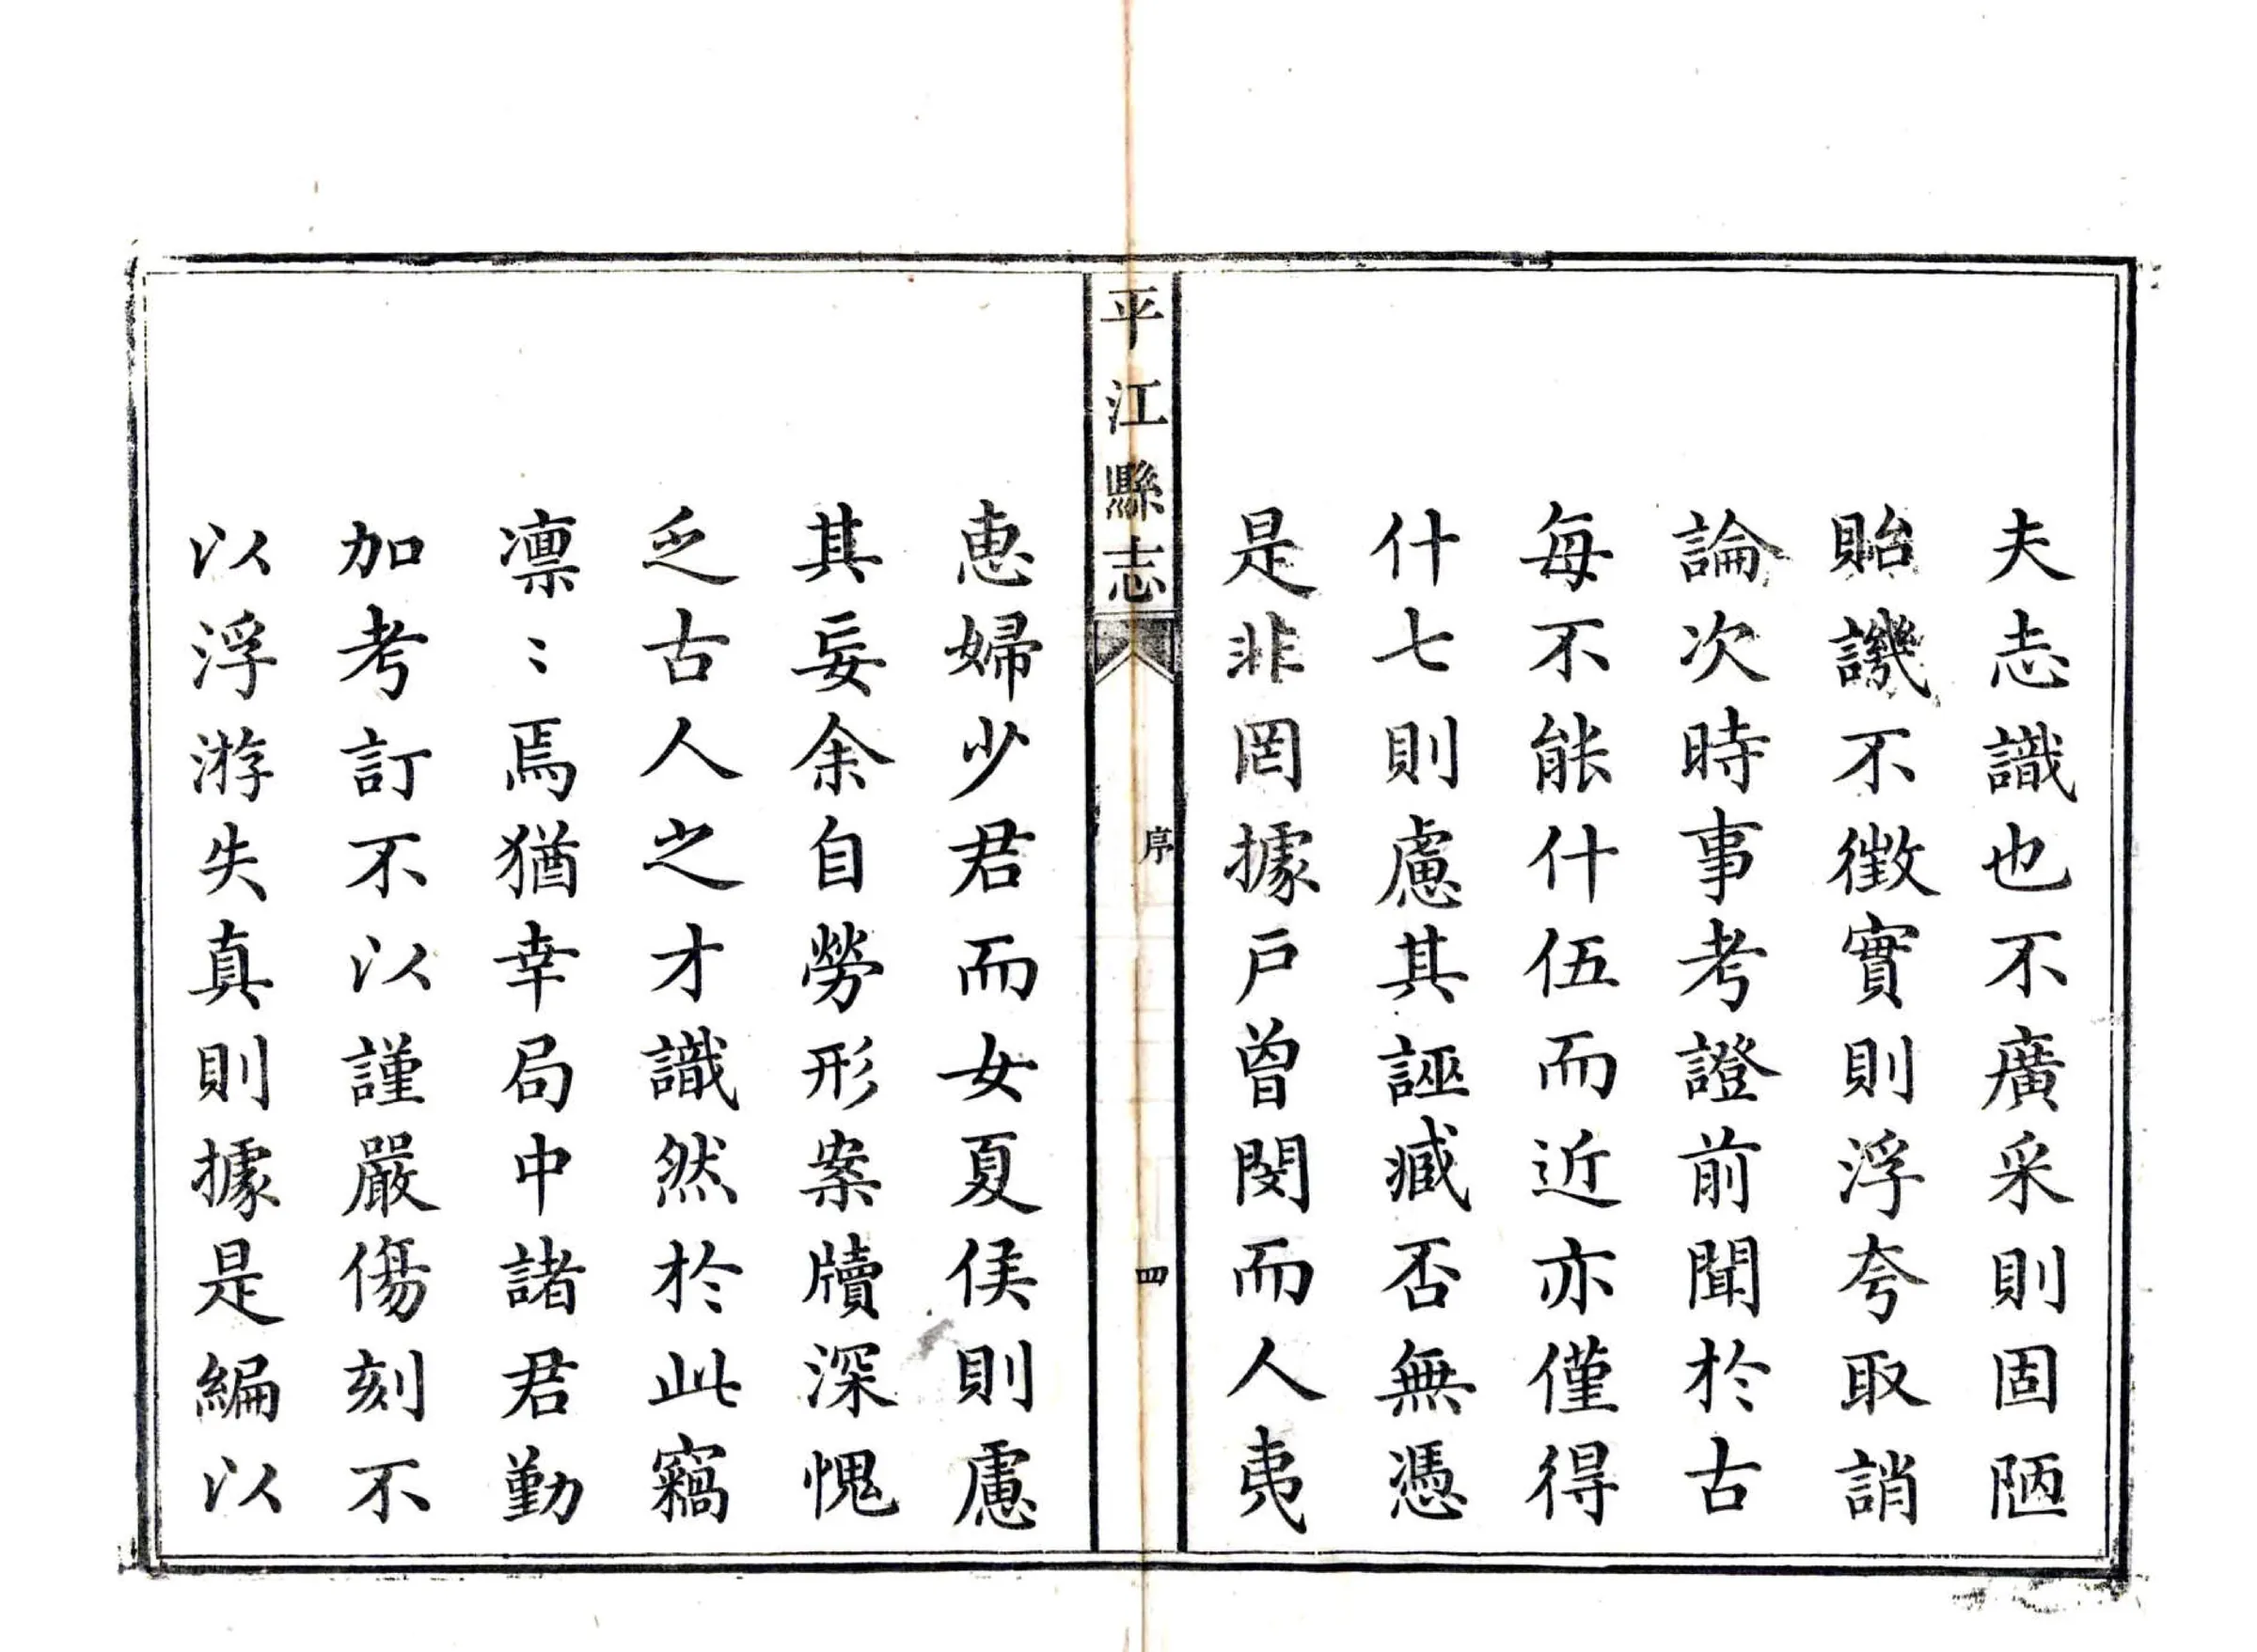 夫志識也不廣采則固陋
貽譏不徵實則浮夸取誚
論次時事考證前聞於古
每不能什伍而近亦僅得
什七則慮其誣臧否無憑
是非罔據戶曾閔而人夷
平江縣志
序
四
惠婦少君而女夏侯則慮
其妄余自勞形案牘深愧
乏古人之才識然於此竊
凛〻焉猶幸局中諸君勤
加考訂不以謹嚴傷刻不
以浮游失真則據是編以